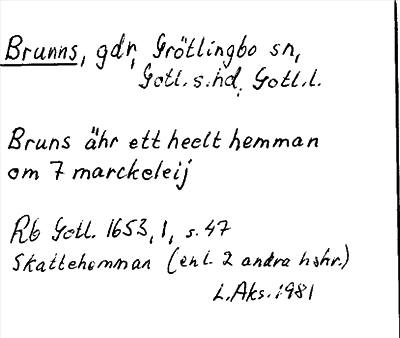 Brunns, gdr, Grötlingbo sn,
Gotl. s. hd. Gotl. l.
Bruns ähr ett heelt hemman
om 7 marckeleij
Rb Gotl. 1653, 1, s. 47
Skattehemman (enl. 2 andra hskr.)
L. Aks. 1981